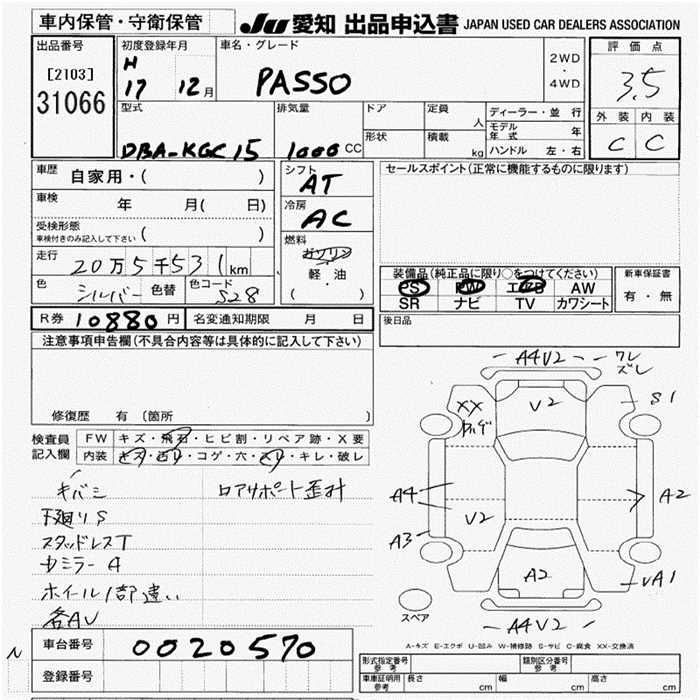 車内保管・守衛保管
JU 愛知 出品申込書 JAPAN USED CAR DEALERS ASSOCIATION
出品番号
[2103]
31066
初度登録年月
H
17 12月
車名・グレード
PASSO
2WD
・
4WD
評価点
3.5
外装 内装
C C
型式
DBA-KGC15
排気量
1000 CC
ドア
形状
定員
人
積載
kg
ディーラー・並行
モデル年式 年
ハンドル 左・右
車歴 自家用・( )
車検 年 月( 日)
受検形態
車検付きのみ記入して下さい ( )
走行 20万5千531km
色 シルバー 色替 色コード S28
シフト
AT
冷房
AC
燃料
ガソリン
軽・油
( )
セールスポイント(正常に機能するものに限ります)
装備品(純正品に限り○をつけてください)
PS PW エアB AW
SR ナビ TV カワシート
新車保証書
有・無
後日品
R券 10880円 名変通知期限 月 日
注意事項申告欄(不具合内容等は具体的に記入して下さい)
修復歴 有 〔箇所 〕
検査員
記入欄
FW キズ・飛石・ヒビ割・リペア跡・X要
内装 キズ・汚リ・コゲ・穴・スリ・キレ・破レ
キバミ
下廻りS
スタッドレスT
ホイル1部違い
各AU
A4V2 ワレ
ズレ
XX V2 S1
A4 A2
V2
A3
A2
A1
A4V2
スペア
A-キズ E-エクボ U-凹み W-補修跡 S-サビ C-腐食 XX-交換済
N
車台番号 0020570
登録番号
形式指定番号
参考
類別区分番号
参考
車庫証明用
参考
長さ cm 幅 cm 高さ cm